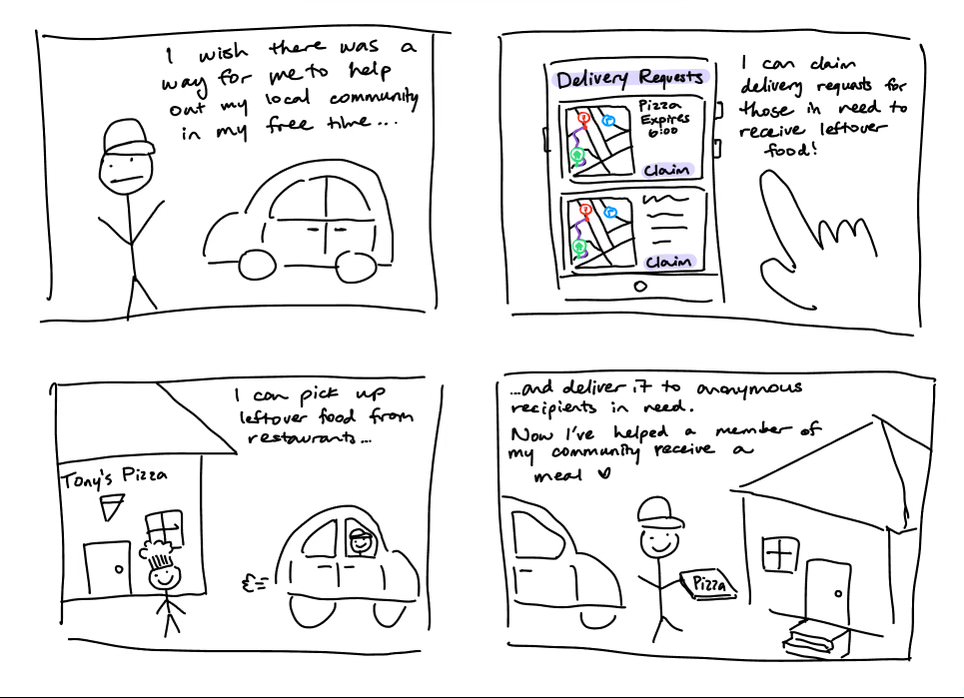 I wish there was a
way for me to help
out my local community
in my free time...
Delivery Requests
Pizza
Expires
6:00
Claim
Claim
I can claim
delivery requests for
those in need to
receive leftover
food!
I can pick up
leftover food from
restaurants...
Tony's Pizza
...and deliver it to anonymous
recipients in need.
Now I've helped a member of
my community receive a
meal ♡
Pizza